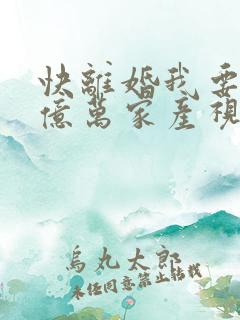 快離婚我要
億萬家產視
烏丸太郎
未任同意禁止轉載